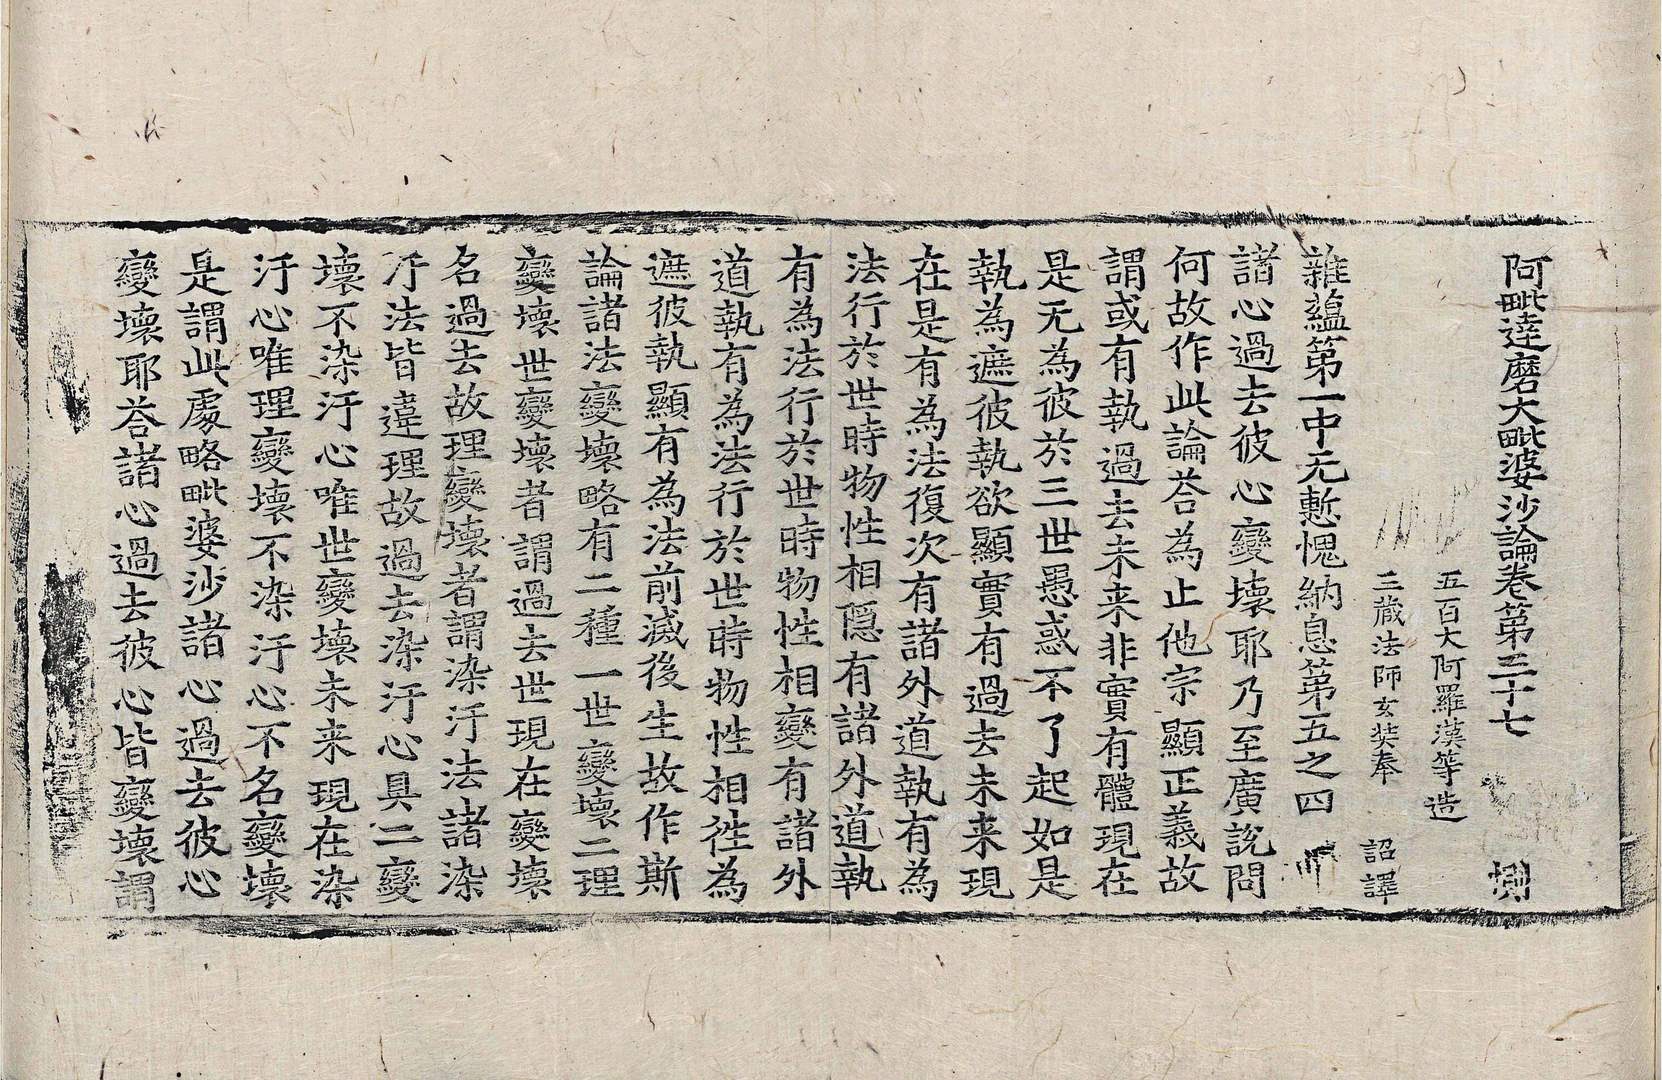 阿毗達磨大毗婆沙論卷第三十七 惻
五百大阿羅漢等造
三藏法師玄奘奉 詔譯
雜蘊第一中无慙愧納息第五之四
諸心過去彼心變壞耶乃至廣說問
何故作此論荅為止他宗顯正義故
謂或有執過去未来非實有體現在
是无為彼於三世愚惑不了起如是
執為遮彼執欲顯實有過去未来現
在是有為法復次有諸外道執有為
法行於世時物性相隐有諸外道執
有為法行於世時物性相變有諸外
道執有為法行於世時物性相徃為
遮彼執顯有為法前滅後生故作斯
論諸法變壞略有二種一世變壞二理
變壞世變壞者謂過去世現在變壞
名過去故理變壞者謂染汙法諸染
汙法皆違理故過去染汙心具二變
壞不染汙心唯世變壞未来現在染
汙心唯理變壞不染汙心不名變壞
是謂此處略毗婆沙諸心過去彼心
變壞耶荅諸心過去彼心皆變壞謂